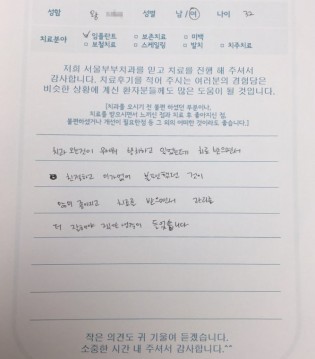 성함 윤 성별 남/여 나이 32
치료분야 ✓임플란트 보존치료 미백
보철치료 스케일링 발치 치주치료
저희 서울부부치과를 믿고 치료를 진행 해 주셔서
감사합니다. 치료후기를 적어 주시는 여러분의 경험담은
비슷한 상황에 계신 환자분들께도 많은 도움이 될 것입니다.
[치과를 오시기 전 불편 하셨던 부분이나,
치료를 받으면서 느끼신 점과 치료 후 좋아지신 점,
불편하셨거나 개선이 필요한점 등 그 외의 어떠한 것이라도 좋습니다.]
치과 오는것이 무서워 하고 있었는데 치료 받으면서
친절하고 아픔없이 불편했던 것이
많이 좋아지고 치료를 받으면서
더 생각이 들었습니다
작은 의견도 귀 기울여 듣겠습니다.
소중한 시간 내 주셔서 감사합니다.^^